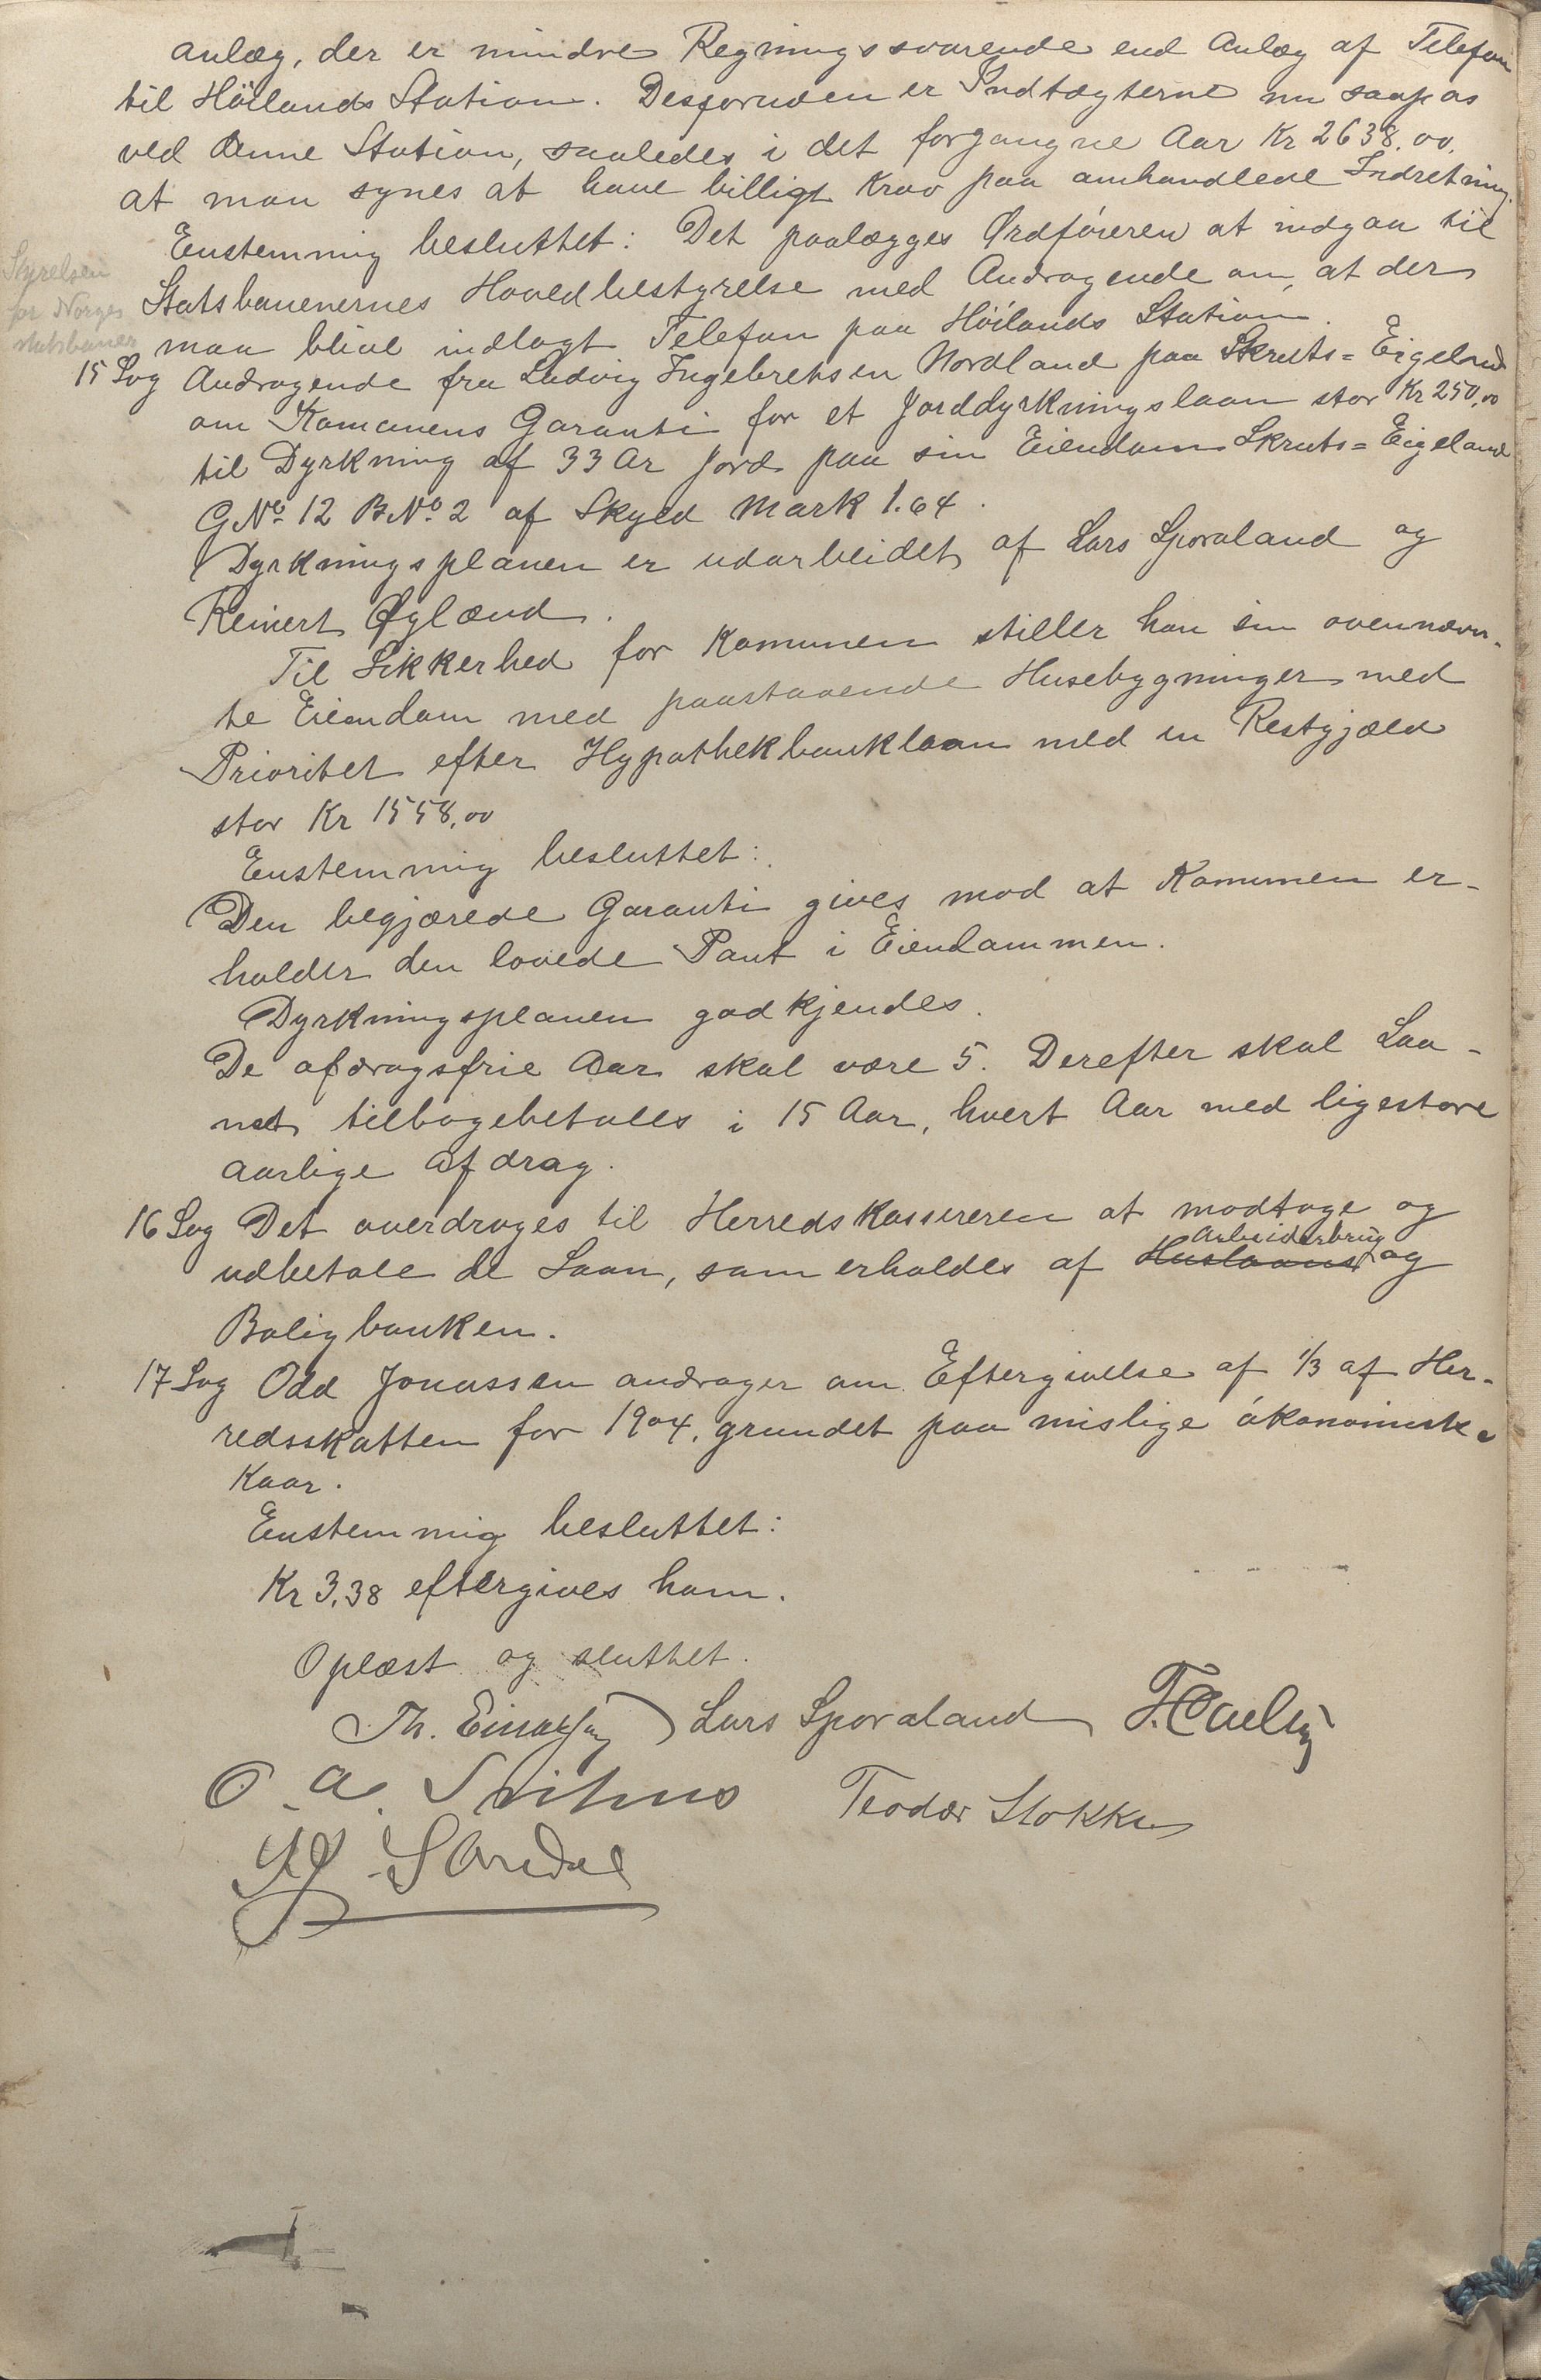 anlæg, der er mindre Regningssvarende end Anlæg af Telefon
til Höilands Station. Desforuden er Indtægterne nu saapas
ved denne Station, saaledes i det forgangne Aar Kr 2638.00,
at man synes at have billigt Krav paa omhandlede Indretning.
Enstemmig besluttet: Det paalægges Ordföreren at indgaa til
Styrelsen
for Norges
statsbaner
Statsbanenernes Hovedbestyrelse med Andragende om, at der
maa blive indlagt Telefon paa Höilands Station.
15 Sag Andragende fra Ludvig Ingebretsen Nordland paa Skruts=Eigeland
om Komunens Garanti for et Jorddyrkningslaan stor Kr 250,00
til Dyrkning af 33 Ar Jord paa sin Eiendom Skruts=Eigeland
GNo. 12 BNo. 2 af Skyld Mark 1.64.
Dyrkningsplanen er udarbeidet af Lars Sporaland og
Reinert Øglænd.
Til Sikkerhed for Komunen stiller han sin ovennævn-
te Eiendom med paastaaende Husebygninger med
Prioritet efter Hypothekbanklaan med en Restgjæld
stor Kr 1558,00
Enstemmig besluttet:
Den begjærede Garanti gives mod at Komunen er-
holder den lovede Pant i Eiendommen.
Dyrkningsplanen godkjendes.
De afdragsfrie Aar skal være 5. Derefter skal Laa-
net tilbagebetales i 15 Aar, hvert Aar med ligestore
aarlige Afdrag.
16 Sag Det overdrages til Herredskassereren at modtage og
udbetale de Laan, som erholdes af Huslaans Arbeiderbrug og
Boligbanken.
17 Sag Odd Jonassen andrager om Eftergivelse af 1/3 af Her-
redsskatten for 1904, grundet paa mislige ökonomiske
Kaar.
Enstemmig besluttet:
Kr 3,38 eftergives ham.
Oplæst og sluttet.
Th. Lars Sporaland
O. A. Teodor Stokke